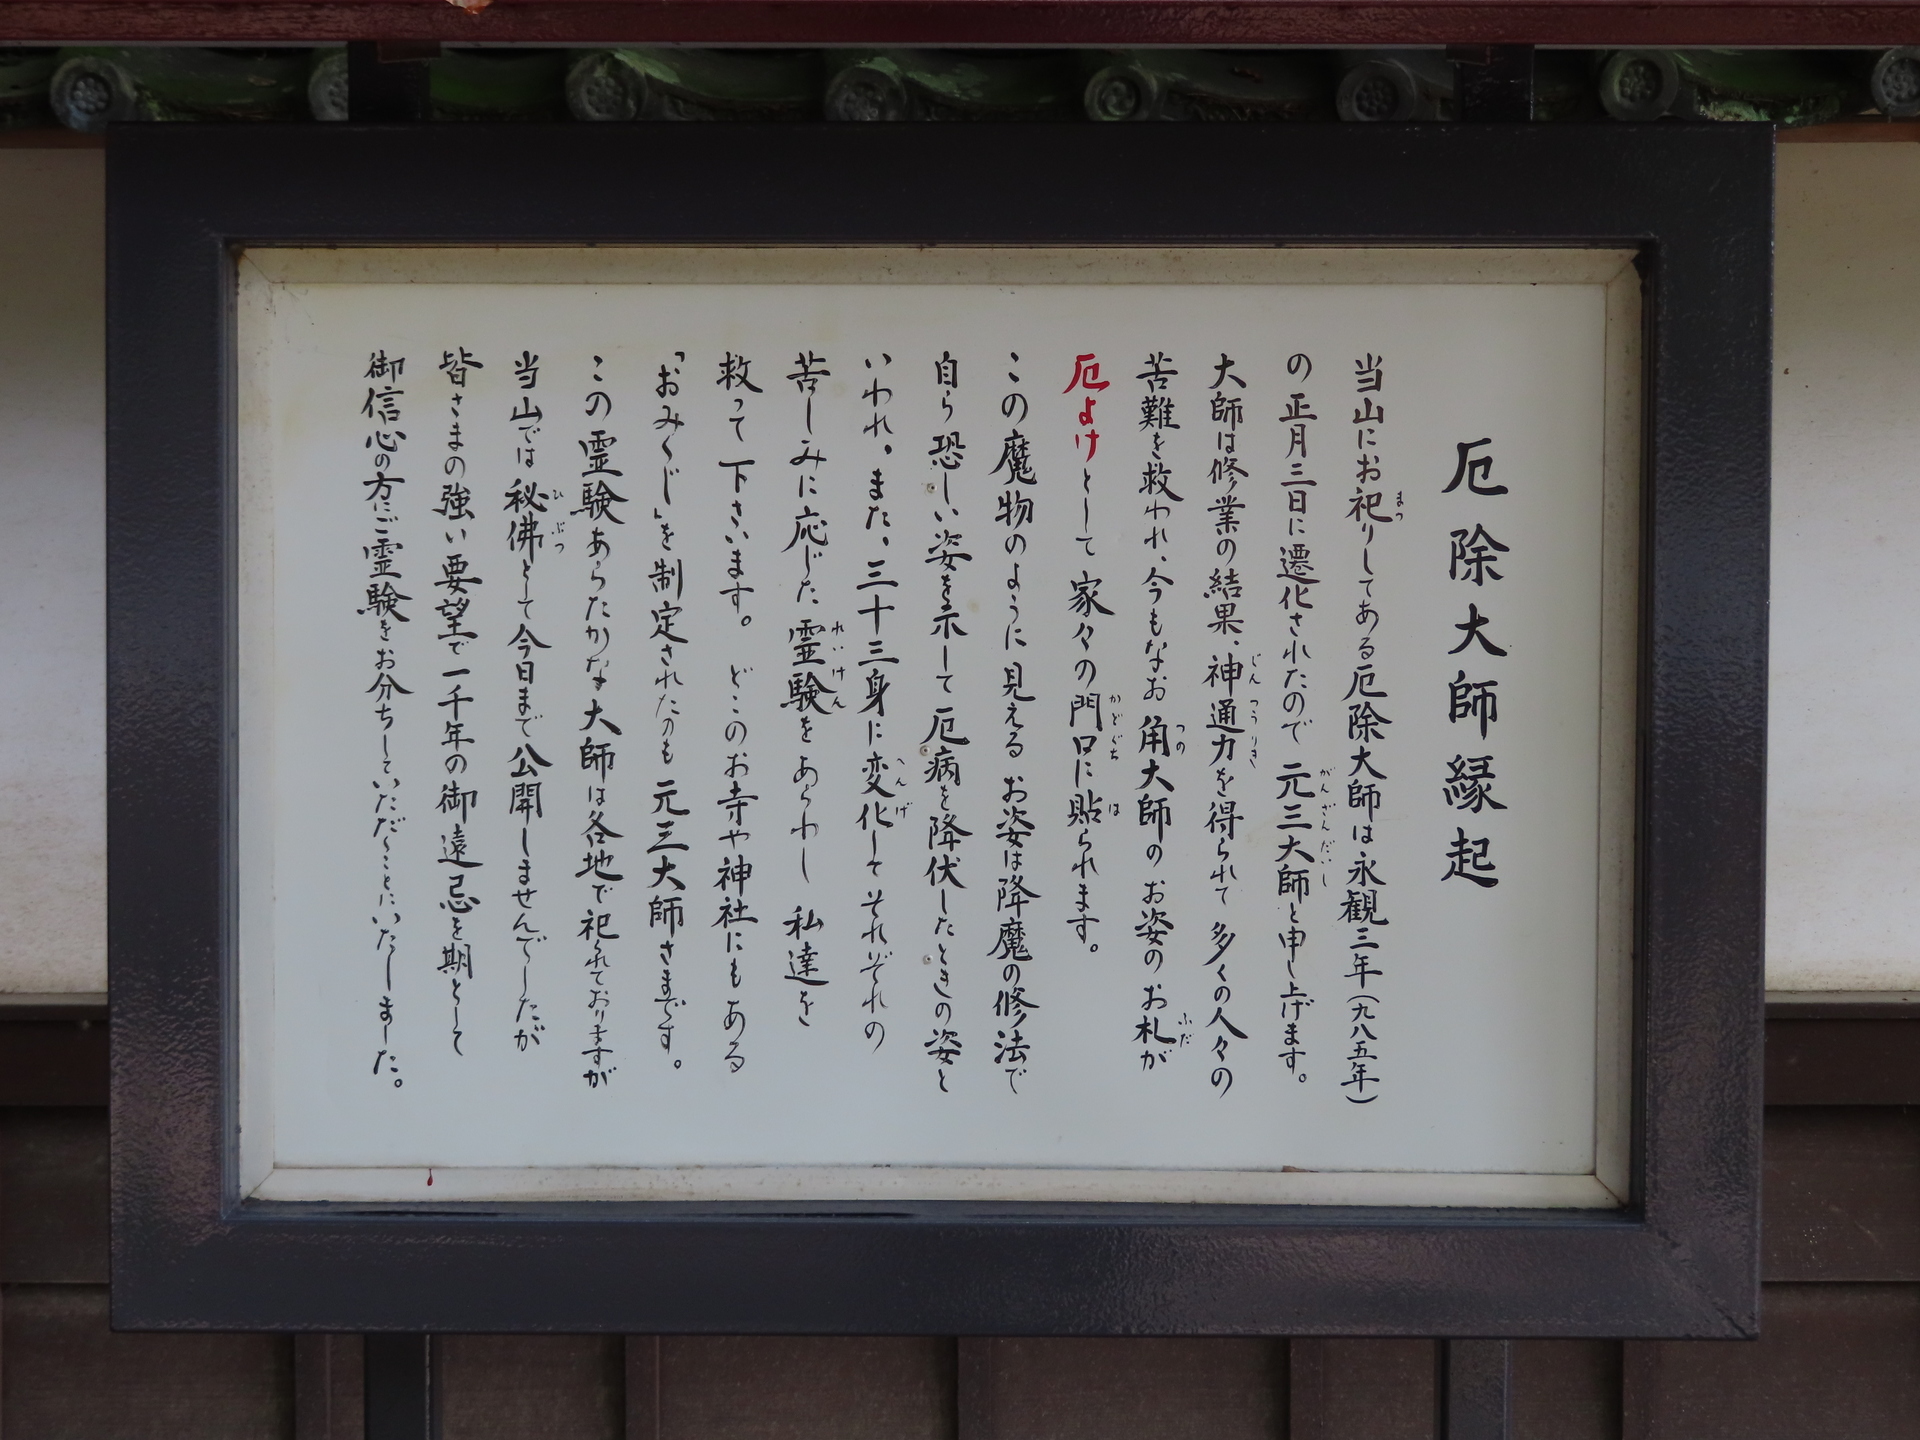 厄除大師縁起
当山にお祀りしてある厄除大師は永観三年(九八五年)
の正月三日に遷化されたので元三大師と申し上げます。
大師は修業の結果、神通力を得られて多くの人々の
苦難を救われ、今もなお角大師のお姿のお札が
厄よけとして家々の門口に貼られます。
この魔物のように見えるお姿は降魔の修法で
自ら恐しい姿を示して厄病を降伏したときの姿と
いわれ、また、三十三身に変化してそれぞれの
苦しみに応じた霊験をあらわし私達を
救って下さいます。 どこのお寺や神社にもある
「おみくじ」を制定されたのも元三大師さまです。
この霊験あらたかな大師は各地で祀られておりますが
当山では秘佛として今日まで公開しませんでしたが
皆さまの強い要望で一千年の御遠忌を期として
御信心の方にご霊験をお分ちしていただくことにいたしました。